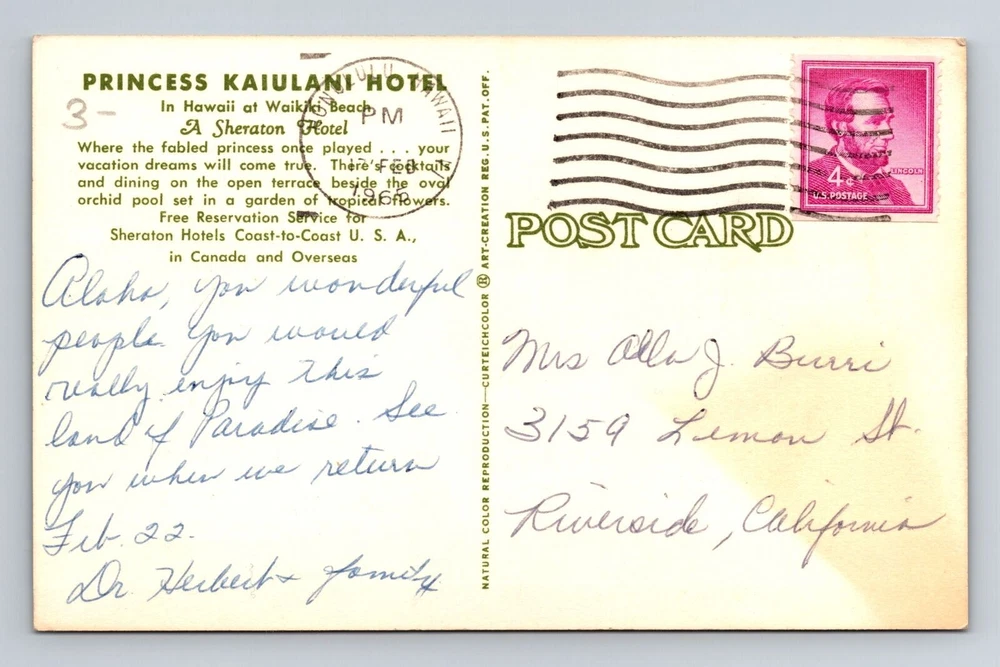 PRINCESS KAIULANI HOTEL
In Hawaii at Waikiki Beach
A Sheraton Hotel
Where the fabled princess once played . . . your
vacation dreams will come true. There's cocktails
and dining on the open terrace beside the oval
orchid pool set in a garden of tropical flowers.
Free Reservation Service for
Sheraton Hotels Coast-to-Coast U. S. A.,
in Canada and Overseas
3-
HONOLULU HAWAII
PM
FEB
1965
Aloha, you wonderful
people. You would
really enjoy this
land of Paradise. See
you when we return
Feb. 22.
Dr. Herbert & family
NATURAL COLOR REPRODUCTION—CURTEICHCOLOR ® ART-CREATION REG. U.S. PAT. OFF.
LINCOLN
4¢
U.S. POSTAGE
POST CARD
Mrs Olla J. Burri
3159 Lemon St.
Riverside, California